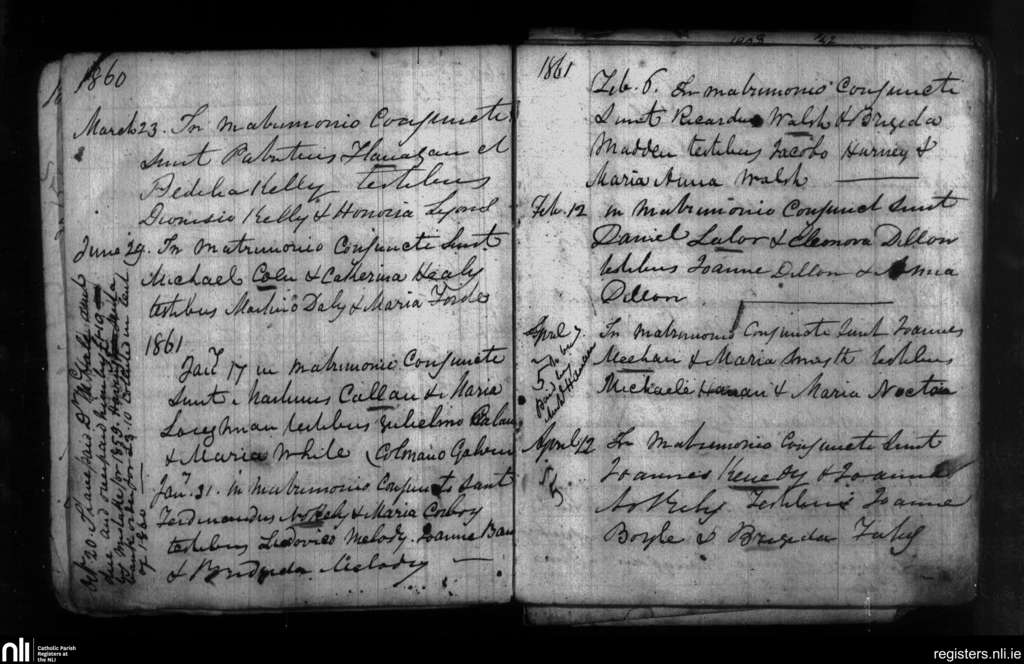 1860
March 23. In matrimonio Conjuncti
Sunt Patritius Flanagan et
Bedelia Kelly testibus
Dionisio Kelly & Honoria Lyons
June 29. In matrimonio Conjuncti Sunt
Michael Coen & Catherina Healy
testibus Martino Daly & Maria Forde
1861
Jan. 17 in matrimonio Conjuncti
Sunt Martinus Callan & Maria
Loughnan testibus Gulielmo
& Maria White
Jan. 31. in Matrimonio Conjuncti Sunt
Ferdinandus & Maria Conboy
testibus Ludovico Melody. Joanne
& Bridgida Melody
20 I have paid Dr
due and
1859
of 1860
1861
Feb. 6. In matrimonio Conjuncti
Sunt Ricardus Walsh & Brigida
Madden testibus Jacobo Harney &
Maria Anna Walsh
Feb. 12 in Matrimonio Conjuncti Sunt
Daniel Lalor & Eleonora Dillon
testibus Joanne Dillon & Anna
Dillon
April 7 In matrimonio Conjuncti Sunt Joannes
Meehan & Maria Smyth testibus
Michaele & Maria Nocton
5
April 12 In Matrimonio Conjuncti Sunt
Joannes Kenedy & Joanna
Testibus Joanne
Boyle & Brigida Fahy
5
nli
Catholic Parish
Registers at
the NLI
registers.nli.ie